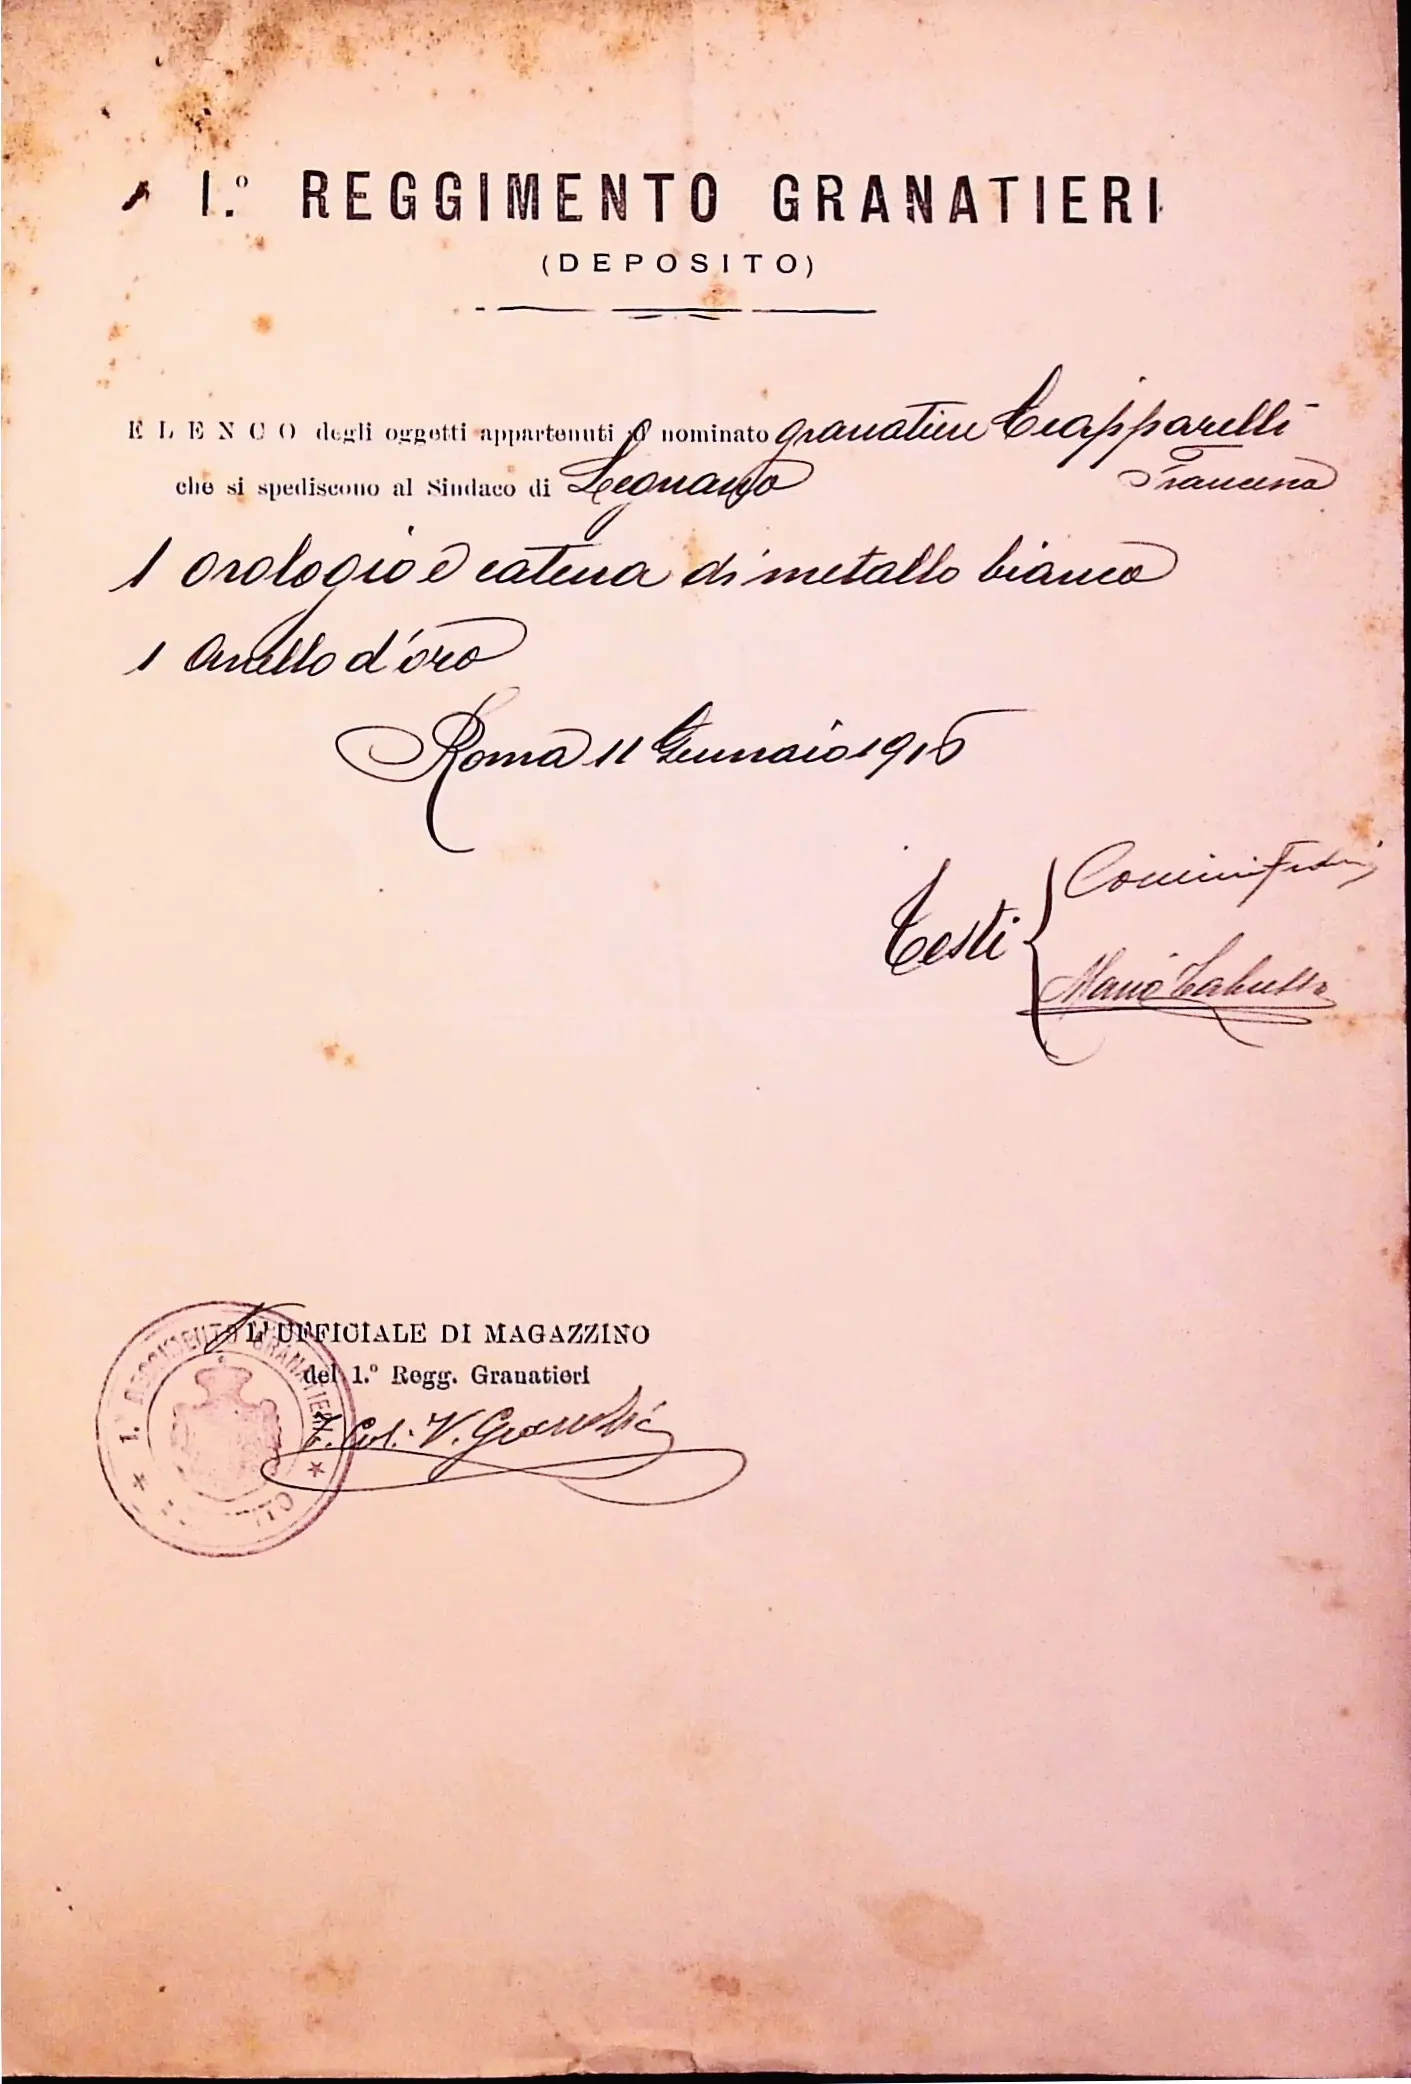 1.º REGGIMENTO GRANATIERI
(DEPOSITO)
ELENCO degli oggetti appartenuti nominato granatiere Ciapparelli
Francesco
che si spediscono al Sindaco di Legnano
1 orologio e catena di metallo bianco
1 Anello d'oro
Roma 11 Gennaio 1916
Testi
Mario
L'UFFICIALE DI MAGAZZINO
del 1.º Regg. Granatieri
T. Col. V.
1.º REGGIMENTO GRANATIERI